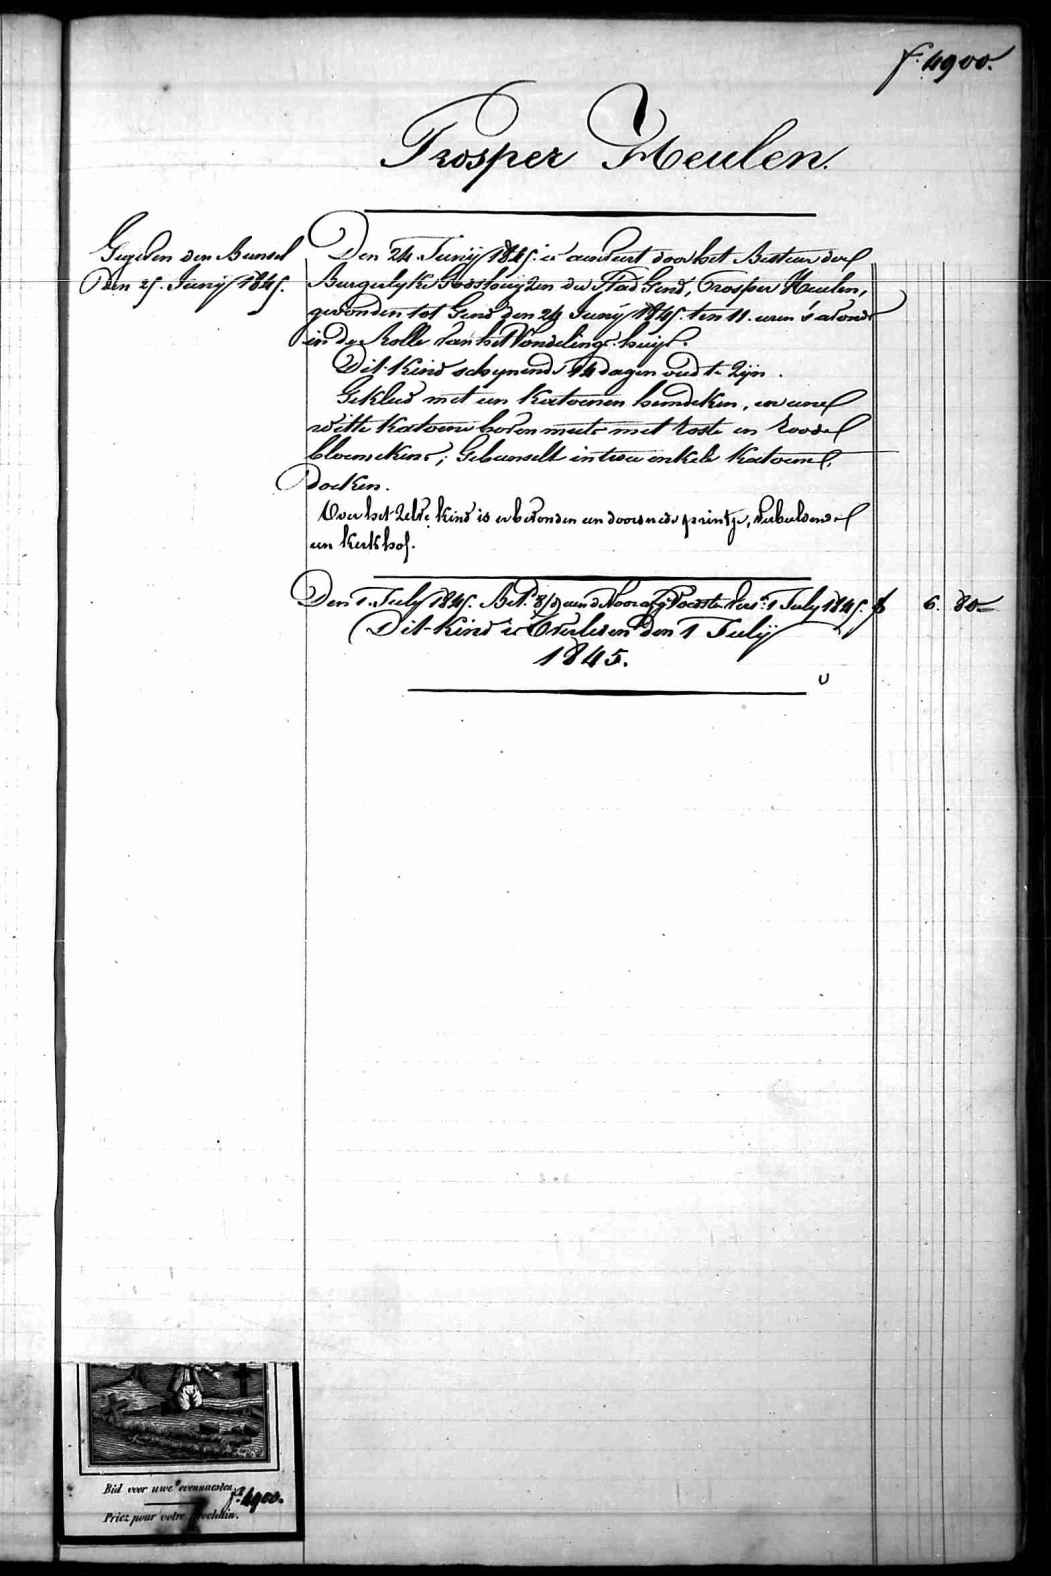 f. 4900.
Prosper Heulen.
Gegeven den Bunsel
Den 25. Junij 1845.
Den 24 Junij 1845. is aenveirt door het Bestuur der
Burgerlyke Godshuijzen der Stad Gend, Prosper Heulen,
gevonden tot Gend den 24 Junij 1845. ten 11. uren 's avonds
in de Rolle van het Vondelinge-huijs.
Dit kind schynende 14 dagen oud te Zijn.
Gekleed met een Katoenen hemdeken, en eene
witte Katoene boven muts met Roste en Roode
bloemekens; Gebunselt in twee enkele Katoene
doeken.
Over het Zelve kind is er bevonden een doorsnede printje, verbeldende
een kerkhof.
Den 1. July 1845. Bet. 8/9 aen de Noorafg. Voester Vers. 1 July 1845. f 6. 80
Dit kind is Overleden den 1 Julij
1845.
Bid voor uwe evennaesten.
f. 4900.
Priez pour votre prochain.